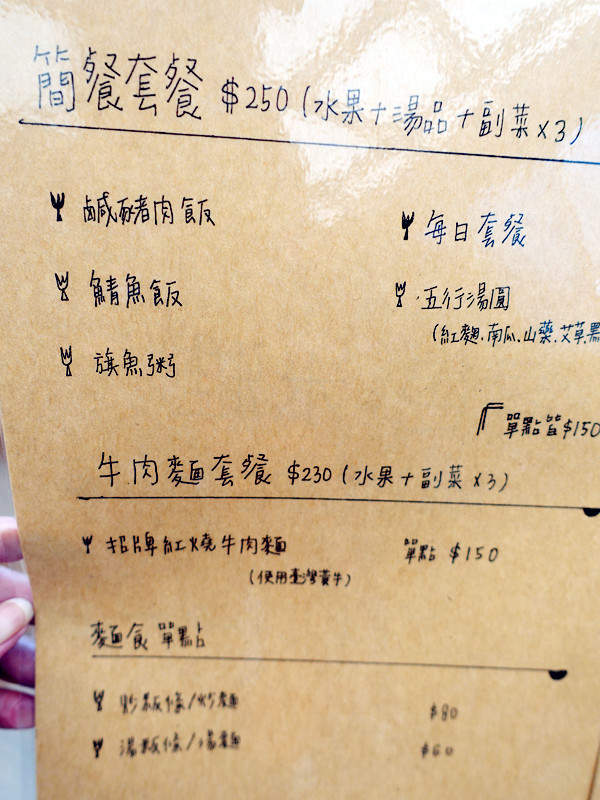 簡餐套餐 $250 (水果+湯品+副菜x3)
鹹豬肉飯
每日套餐
鯖魚飯
五行湯圓
(紅麴.南瓜.山藥.艾草.黑
旗魚粥
單點皆$150
牛肉麵套餐 $230 (水果+副菜x3)
招牌紅燒牛肉麵 單點 $150
(使用臺灣黃牛)
麵食單點
炒粄條/炒麵 $80
湯粄條/湯麵 $60